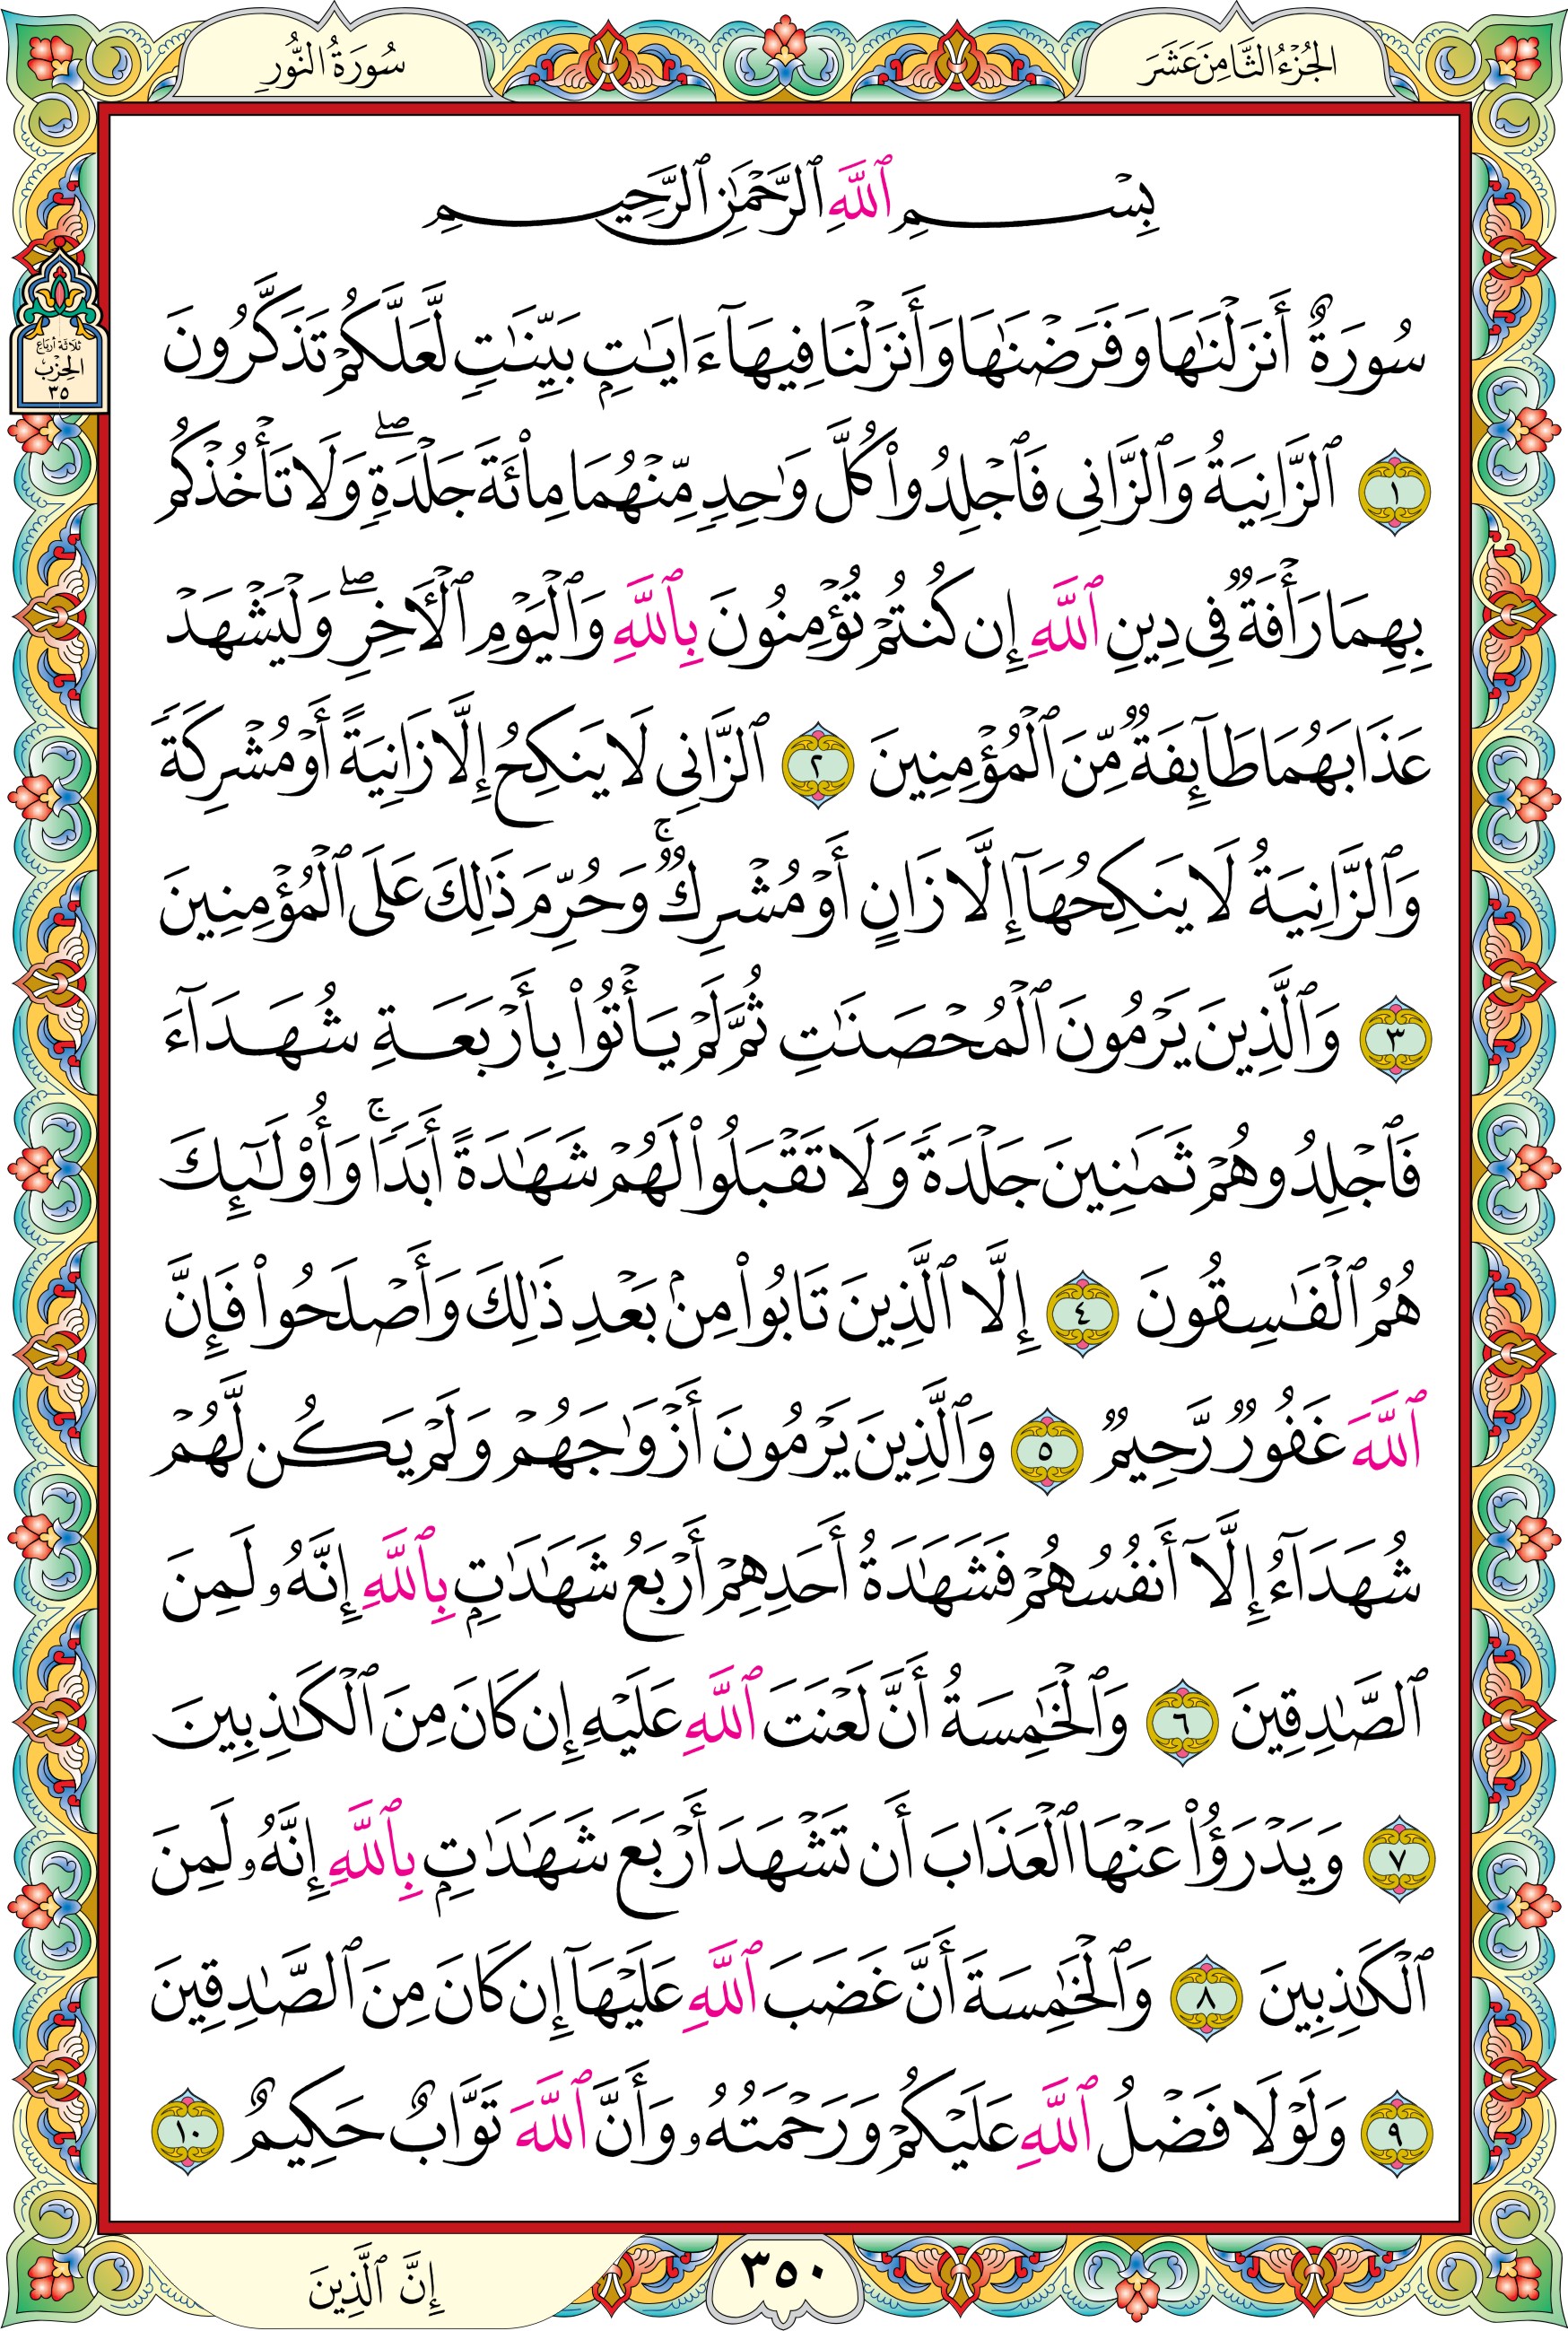 الجُزْءُ الثَّامِنَ عَشَرَ
سُورَةُ النُّورِ
بِسْمِ ٱللَّهِ ٱلرَّحْمَٰنِ ٱلرَّحِيمِ
سُورَةٌ أَنزَلْنَٰهَا وَفَرَضْنَٰهَا وَأَنزَلْنَا فِيهَآ ءَايَٰتٍۭ بَيِّنَٰتٍ لَّعَلَّكُمْ تَذَكَّرُونَ
ثلاثة أرباع
الحِزْب
٣٥
١ ٱلزَّانِيَةُ وَٱلزَّانِى فَٱجْلِدُوا۟ كُلَّ وَٰحِدٍ مِّنْهُمَا مِا۟ئَةَ جَلْدَةٍ ۖ وَلَا تَأْخُذْكُم
بِهِمَا رَأْفَةٌ فِى دِينِ ٱللَّهِ إِن كُنتُمْ تُؤْمِنُونَ بِٱللَّهِ وَٱلْيَوْمِ ٱلْـَٔاخِرِ ۖ وَلْيَشْهَدْ
عَذَابَهُمَا طَآئِفَةٌ مِّنَ ٱلْمُؤْمِنِينَ ٢ ٱلزَّانِى لَا يَنكِحُ إِلَّا زَانِيَةً أَوْ مُشْرِكَةً
وَٱلزَّانِيَةُ لَا يَنكِحُهَآ إِلَّا زَانٍ أَوْ مُشْرِكٌ ۚ وَحُرِّمَ ذَٰلِكَ عَلَى ٱلْمُؤْمِنِينَ
٣ وَٱلَّذِينَ يَرْمُونَ ٱلْمُحْصَنَٰتِ ثُمَّ لَمْ يَأْتُوا۟ بِأَرْبَعَةِ شُهَدَآءَ
فَٱجْلِدُوهُمْ ثَمَٰنِينَ جَلْدَةً وَلَا تَقْبَلُوا۟ لَهُمْ شَهَٰدَةً أَبَدًا ۚ وَأُو۟لَٰٓئِكَ
هُمُ ٱلْفَٰسِقُونَ ٤ إِلَّا ٱلَّذِينَ تَابُوا۟ مِنۢ بَعْدِ ذَٰلِكَ وَأَصْلَحُوا۟ فَإِنَّ
ٱللَّهَ غَفُورٌ رَّحِيمٌ ٥ وَٱلَّذِينَ يَرْمُونَ أَزْوَٰجَهُمْ وَلَمْ يَكُن لَّهُمْ
شُهَدَآءُ إِلَّآ أَنفُسُهُمْ فَشَهَٰدَةُ أَحَدِهِمْ أَرْبَعُ شَهَٰدَٰتٍۭ بِٱللَّهِ إِنَّهُۥ لَمِنَ
ٱلصَّٰدِقِينَ ٦ وَٱلْخَٰمِسَةُ أَنَّ لَعْنَتَ ٱللَّهِ عَلَيْهِ إِن كَانَ مِنَ ٱلْكَٰذِبِينَ
٧ وَيَدْرَؤُا۟ عَنْهَا ٱلْعَذَابَ أَن تَشْهَدَ أَرْبَعَ شَهَٰدَٰتٍۭ بِٱللَّهِ إِنَّهُۥ لَمِنَ
ٱلْكَٰذِبِينَ ٨ وَٱلْخَٰمِسَةَ أَنَّ غَضَبَ ٱللَّهِ عَلَيْهَآ إِن كَانَ مِنَ ٱلصَّٰدِقِينَ
٩ وَلَوْلَا فَضْلُ ٱللَّهِ عَلَيْكُمْ وَرَحْمَتُهُۥ وَأَنَّ ٱللَّهَ تَوَّابٌ حَكِيمٌ ١٠
٣٥٠
إِنَّ ٱلَّذِينَ